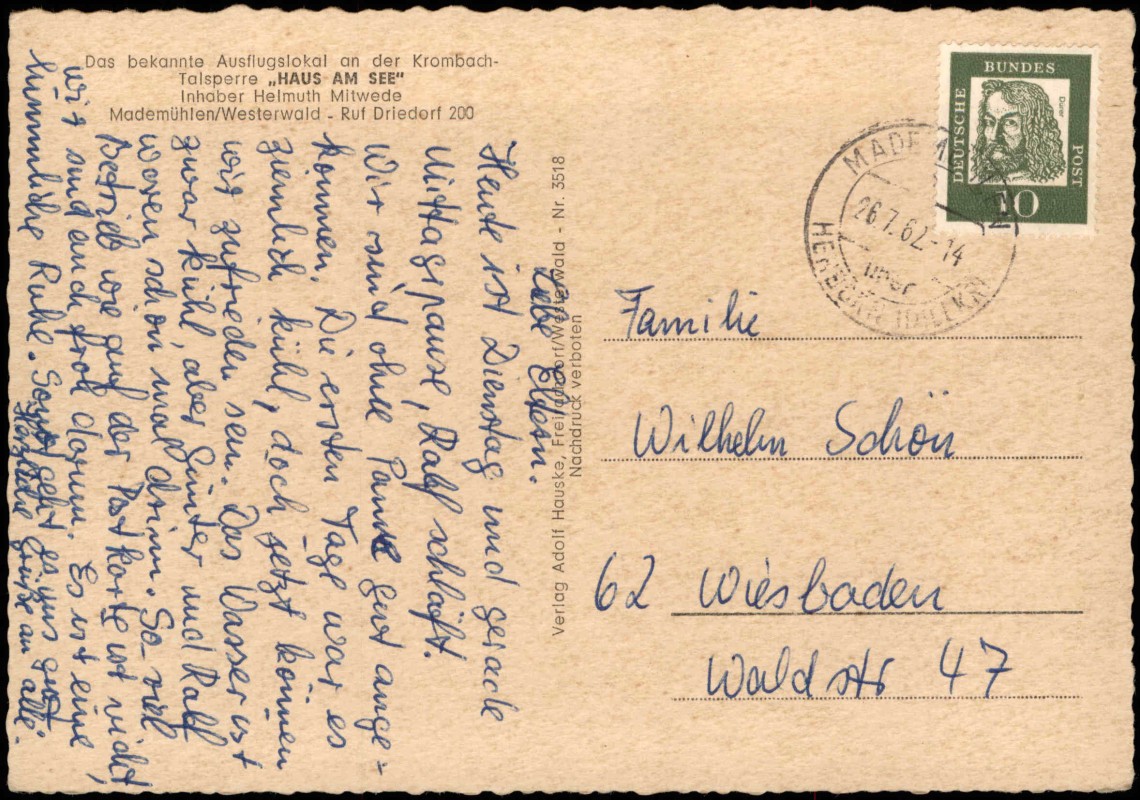 Das bekannte Ausflugslokal an der Krombach-
Talsperre „HAUS AM SEE"
Inhaber Helmuth Mitwede
Mademühlen/Westerwald - Ruf Driedorf 200
Liebe Eltern.
Heute ist Dienstag und gerade
Mittagspause, Ralf schläft.
Wir sind ohne Panne gut ange=
kommen. Die ersten Tage war es
ziemlich kühl, doch jetzt können
wir zufrieden sein. Das Wasser ist
zwar kühl, aber Günter und Ralf
waren schon mal drinn. So viel
Betrieb wie auf der Postkarte ist nicht,
wir sind auch froh darum. Es ist eine
himmliche Ruhe. Sonst geht es uns gut
Herzliche Grüße an alle.
Verlag Adolf Hauske, Freilendorf/Westerwald - Nr. 3518
Nachdruck verboten
DEUTSCHE
BUNDES
POST
Dürer
10
26.7.62-14
über
Familie
Wilhelm Schön
62 Wiesbaden
Waldstr 47